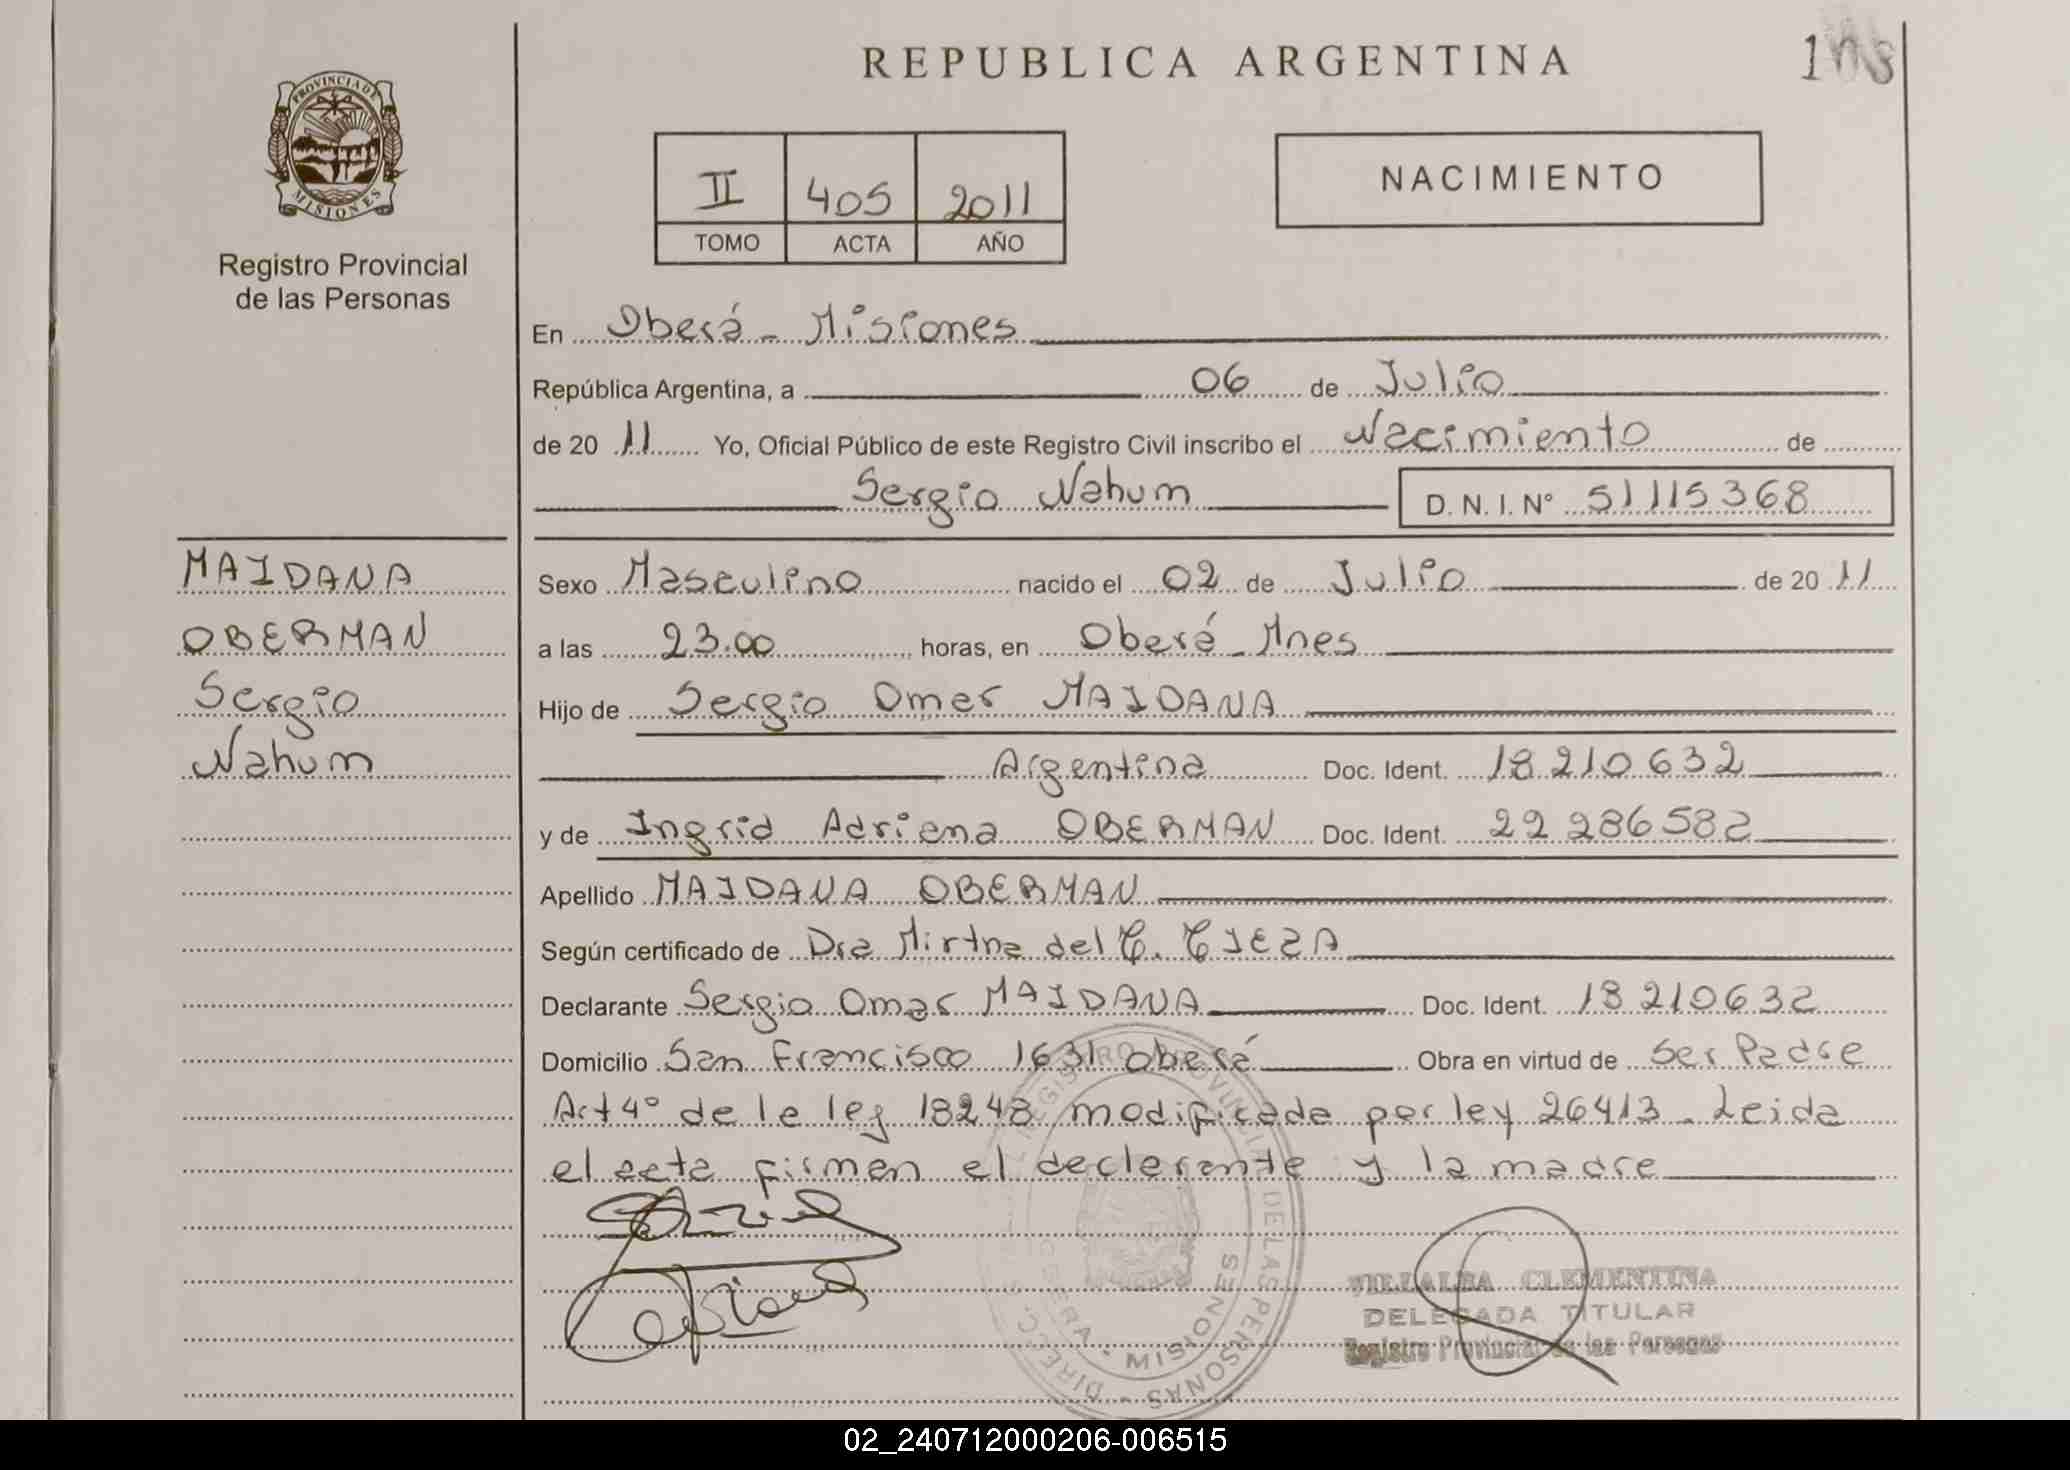 REPUBLICA ARGENTINA
PROVINCIA DE
MISIONES
Registro Provincial
de las Personas
II 405 2011
TOMO ACTA AÑO
NACIMIENTO
En Oberá - Misiones
República Argentina, a 06 de Julio
de 20 11 Yo, Oficial Público de este Registro Civil inscribo el Nacimiento de
Sergio Nahum D. N. I. N° 51115368
MAIDANA
OBERMAN
Sergio
Nahum
Sexo Masculino nacido el 02 de Julio de 20 11
a las 23.00 horas, en Oberá - Mnes
Hijo de Sergio Omar MAIDANA
Argentina Doc. Ident. 18 210 632
y de Ingrid Adriana OBERMAN Doc. Ident. 22 286 582
Apellido MAIDANA OBERMAN
Según certificado de Dra Mirtha del C. CIEZA
Declarante Sergio Omar MAIDANA Doc. Ident. 18 210 632
Domicilio San Francisco 1631 Oberá Obra en virtud de Ser Padre
Art 4° de la ley 18248 modificada por ley 26413 - Leida
el acta firman el declarante y la madre
REGISTRO PROVINCIAL DE LAS PERSONAS
OBERA - MISIONES
VILLALBA CLEMENTINA
DELEGADA TITULAR
Registro Provincial de las Personas
02_240712000206-006515